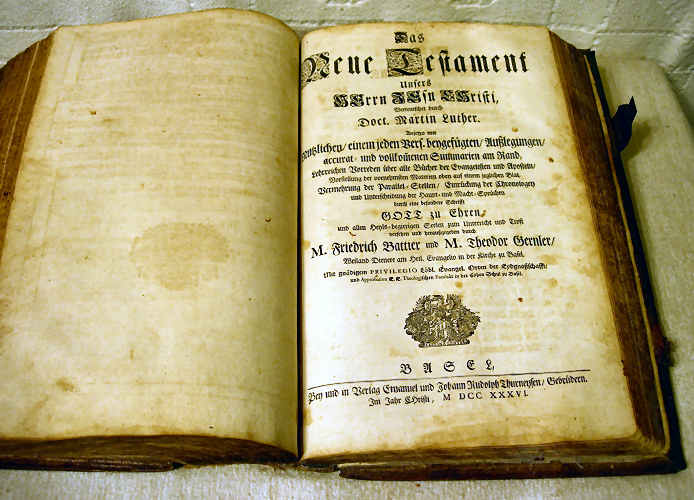 Das
Neue Testament
Unsers
HErrn JEsu CHristi,
Verteutschet durch
Doct. Martin Luther.
Anjetzo mit
nutzlichen/ einem jeden Vers beygefügten/ Außlegungen/
accurat- und vollkom̄enen Summarien am Rand,
Lehrreichen Vorreden über alle Bücher der Evangelisten und Aposteln/
Vorstellung der vornehmsten Materien oben auf einem jeglichen Blat,
Vermehrung der Parallel-Stellen/ Einrückung der Chronologey
und Unterscheidung der Haupt- und Macht-Sprüchen
durch eine besondere Schrifft
GOTT zu Ehren,
und allen Heyls-begierigen Seelen zum Unterricht und Trost
versehen und herausgegeben durch
M. Friedrich Battier und M. Theodor Gernler/
Weiland Dienere am Heil. Evangelio in der Kirche zu Basel.
Mit gnädigem PRIVILEGIO Löbl. Evangel. Orten der Eydgnoßschafft/
und Approbation E. E. Theologischen Facultät in der Hohen Schul zu Basel.
BASEL,
Bey und in Verlag Emanuel und Johann Rudolph Thurneysen/ Gebrüdern.
Im Jahr CHristi, M DCC XXXVI.